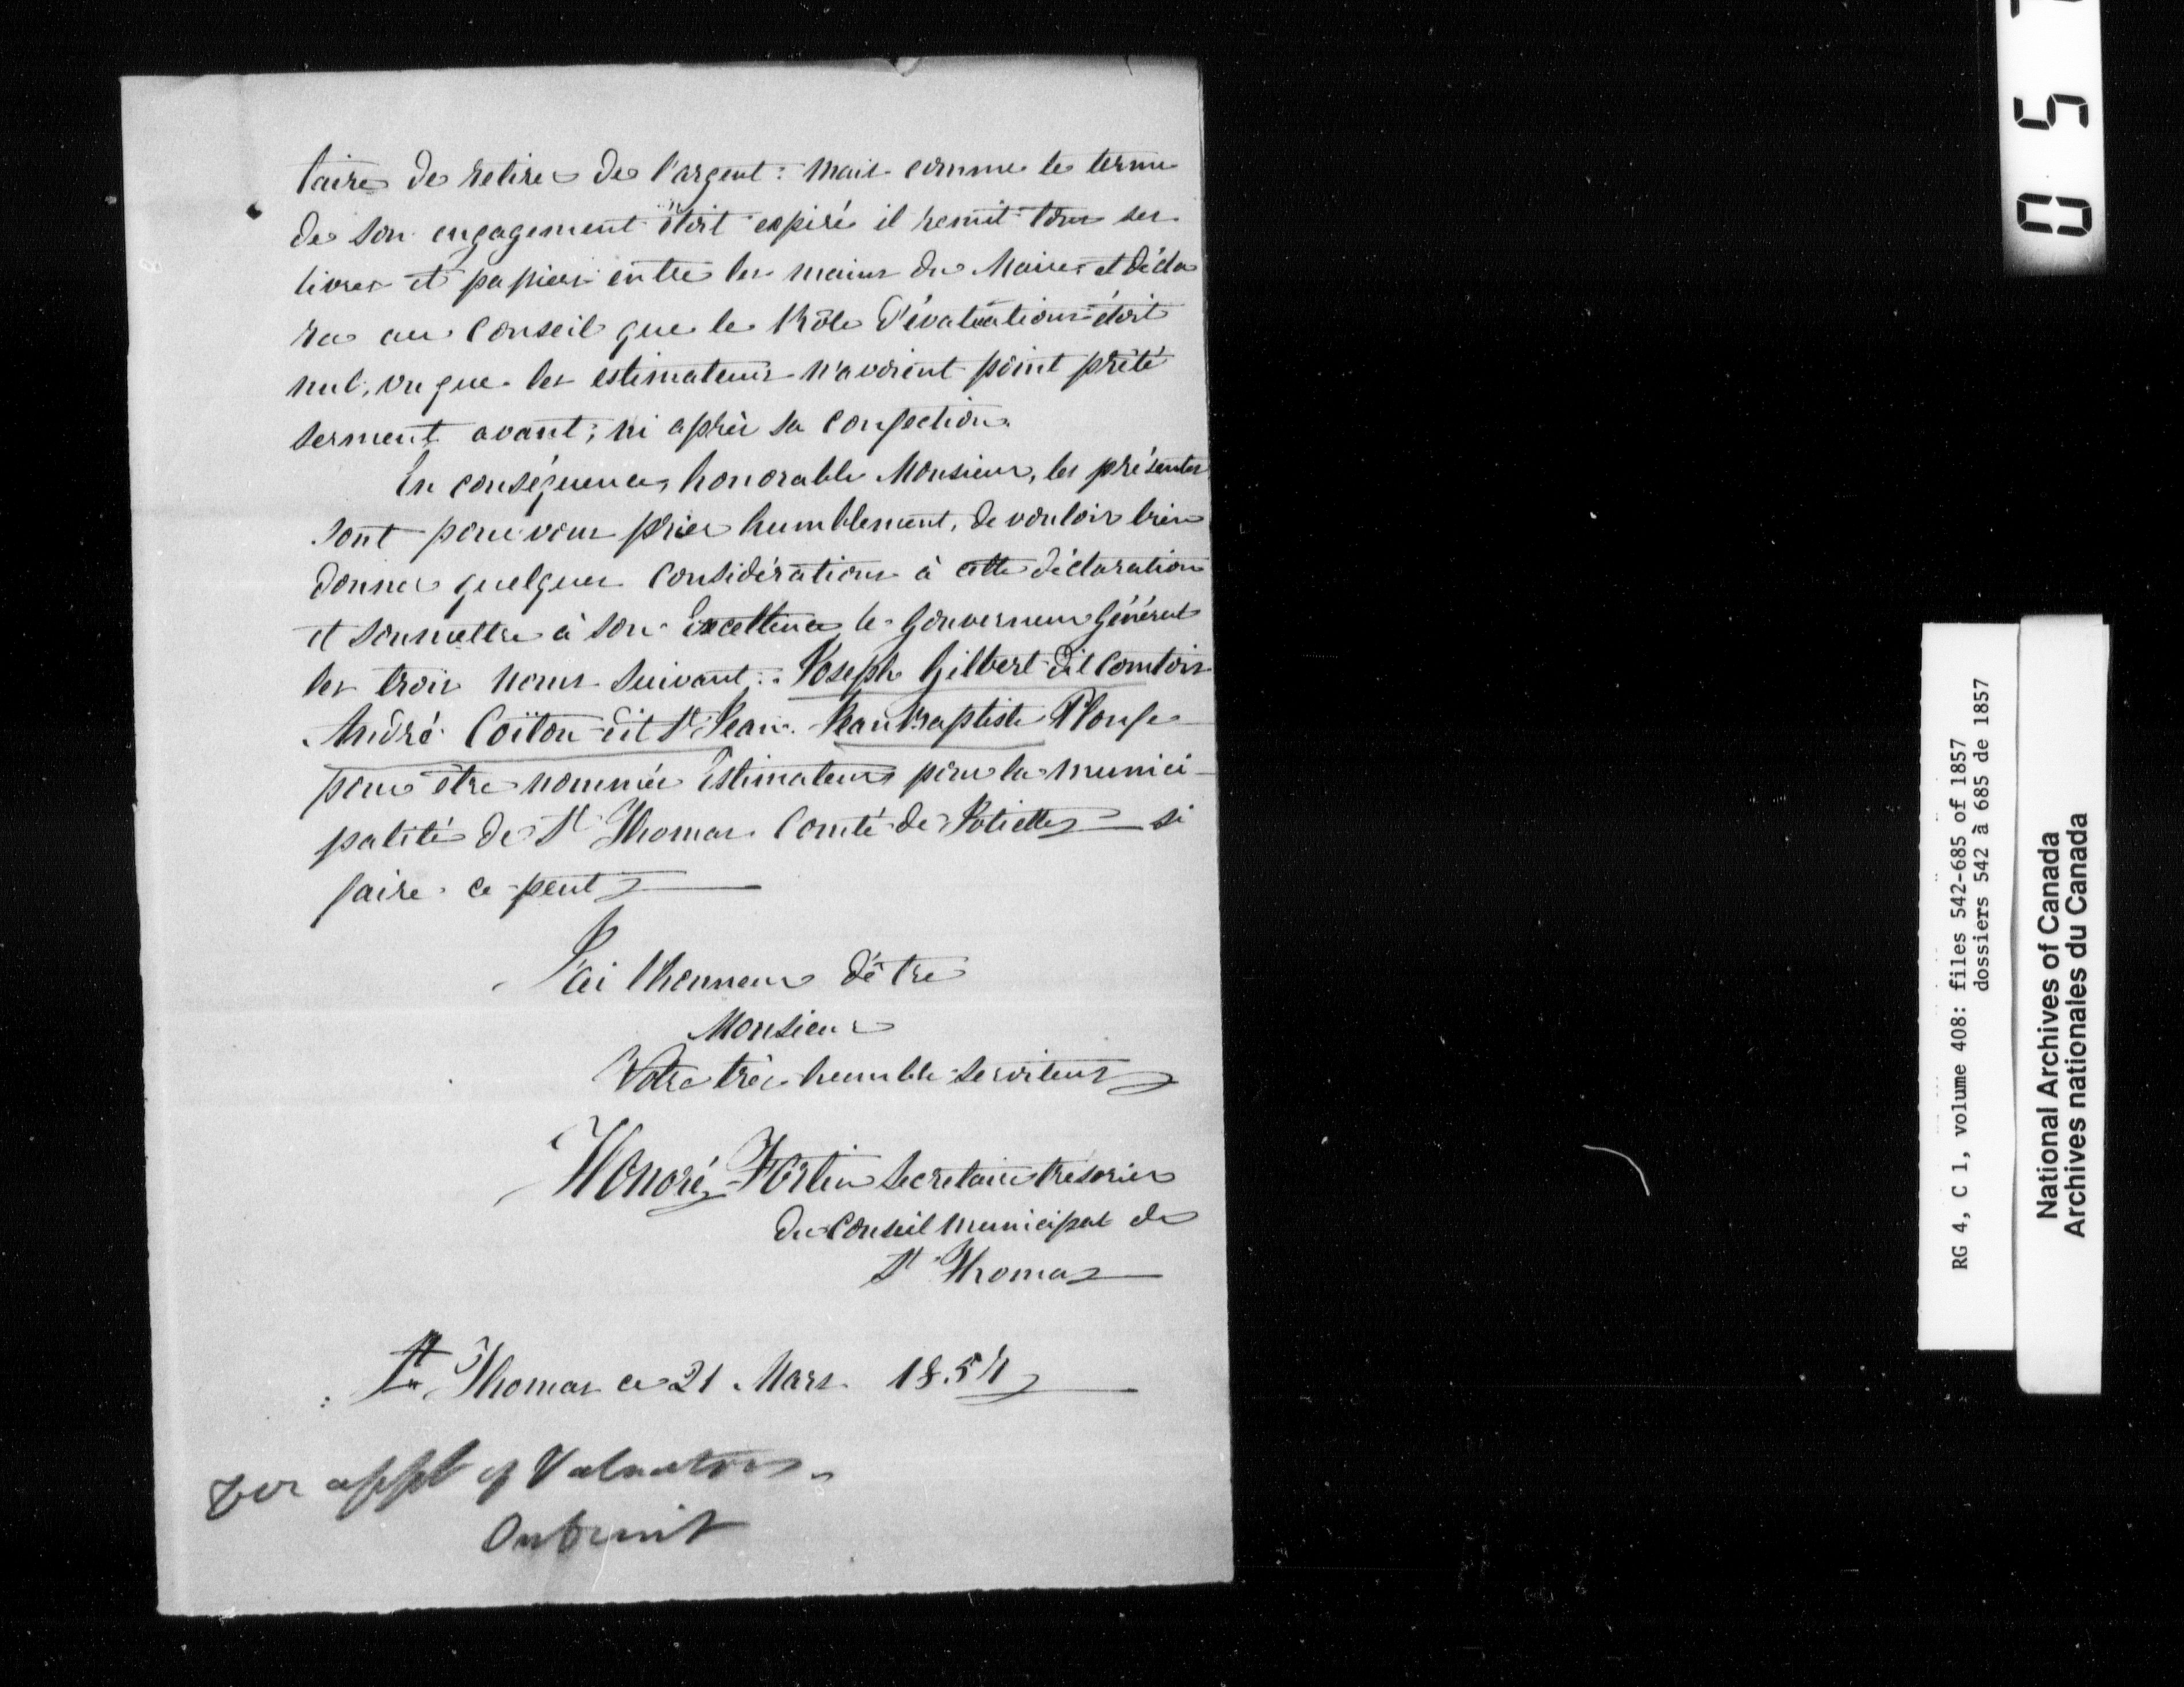 taire de retirer de l'argent : mais comme le terme
de son engagement étoit expiré il remit tous ses
livres et papiers entre les mains du Maire et décla
ra au Conseil que le Rôle d'évaluations étoit
nul, vu que les estimateurs n'avoient point prêté
serment avant, ni après sa confection.
En conséquence, honorable Monsieur, les présentes
sont pour vous prier humblement, de vouloir bien
donner quelques considérations à cette déclaration
et soumettre à son Excellence le Gouverneur Général
les trois noms suivant : Joseph Gilbert dit Comtois
André Coiton dit St Jean. Jean Baptiste Ploufe
pour être nommés Estimateurs pour la munici-
palité de St Thomas Comté de Joliette si
faire ce peut
J'ai l'honneur d'être
Monsieur
Votre très humble serviteur
Honoré Fortin Secretaire trésorier
du Conseil municipal de
St Thomas
St Thomas ce 21 Mars 1857
for appt of Valuators.
Submit
0 5
RG 4, C 1, volume 408: files 542-685 of 1857
dossiers 542 à 685 de 1857
National Archives of Canada
Archives nationales du Canada